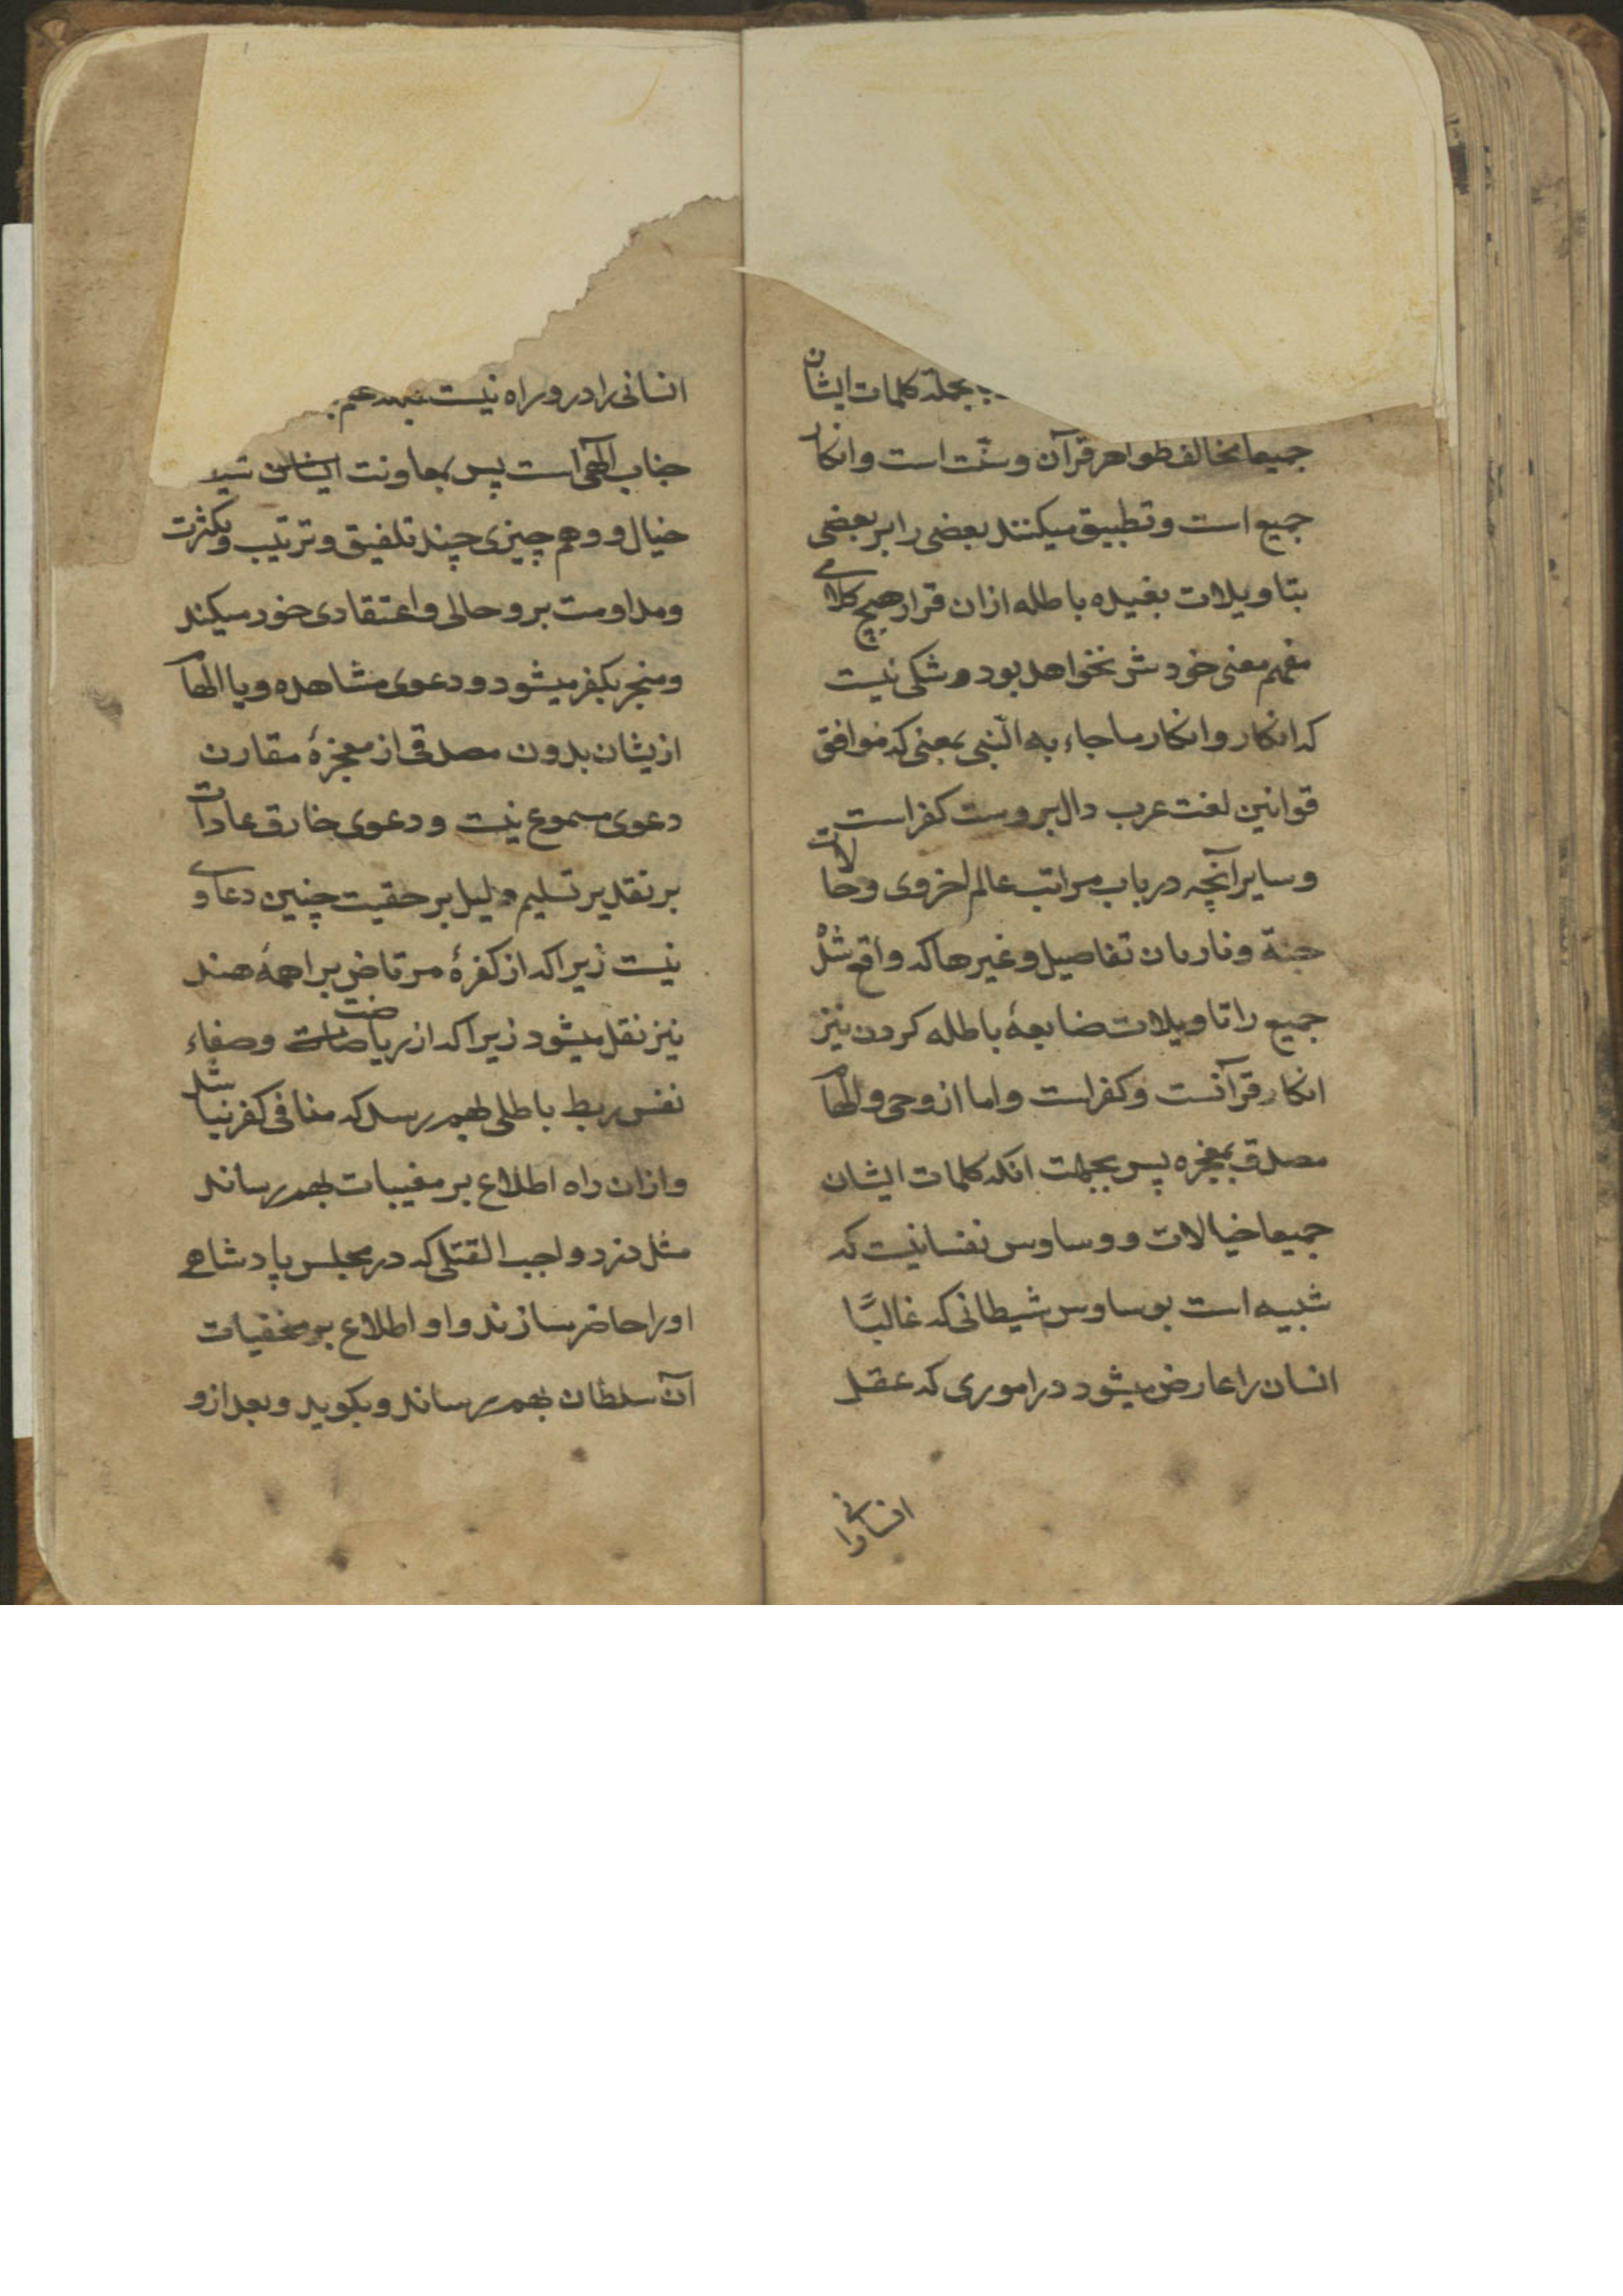 بجملة کلمات ایشان
جمیعا مخالف ظواهر قرآن و سنّت است و انکار
جمیع است و تطبیق میکنند بعضی را بر بعضی
بتاویلات بعیده باطله ازان قرار هیچ کلامے
مفهم معنی خودش نخواهد بود و شکی نیست
که انکار و انکار ما جاء به النّبی بمعنی که موافق
قوانین لغت عرب دال بروست کفر است
و سایر آنچه در باب مراتب عالم اخروی و حالات
جنة و نار بان تفاصیل و غیرها که واقع شد
جمیع را تاویلات ضایعهٔ باطله کردن نیز
انکار قرآنست و کفر است و اما از وحی و الهام
مصدق بمعجزه پس بجهت انکه کلمات ایشان
جمیعا خیالات و وساوس نفسانیست که
شبیه است بوساوس شیطانی که غالبًا
انسان را عارض میشود در اموری که عقل
انسانی را
انسانی را درو راه نیست
جناب الهی است پس بمعاونت
خیال و وهم چیزی چند تلفیق و ترتیب و بکثرت
و مداومت برو حالی و اعتقادی خود میکند
و منجر بکفر میشود و دعوی مشاهده و یا الهام
ازیشان بدون مصدقی از معجزهٔ مقارن
دعوی مسموع نیست و دعوی خارق عادات
بر تقدیر تسلیم دلیل بر حقیت چنین دعاوے
نیست زیرا که از کفرهٔ مرتاض براهمهٔ هند
نیز نقل میشود زیرا که از ریاضت و صفاء
نفس ربط باطلی بهم رسد که منافی کفر نباشد
و ازان راه اطلاع بر مغیبات بهم رساند
مثل دزد واجب القتلی که در مجلس پادشاهے
او را حاضر سازند و او اطلاع بر مخفیات
آن سلطان بهم رساند و بگوید و بعد ازو